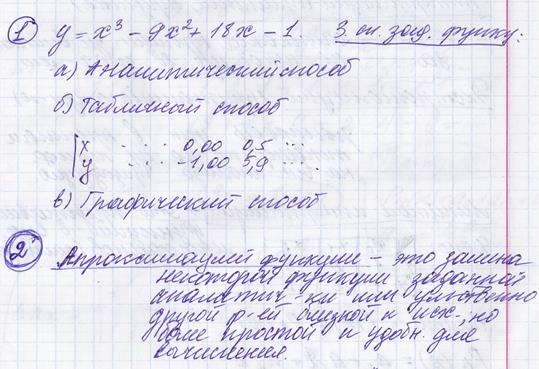 ① y = x³ - 9x² + 18x - 1. 3 сп. зад. функц:
а) Аналитический способ
б) Табличный способ
x ... 0,00 0,5 ...
y ... -1,00 5,9 ...
в) Графический способ
② Апроксимацией функции - это замена
некоторой функции заданной
аналитич-ки или
другой ф-ей близкой к исх-, но
более простой и удобн. для
вычисления.